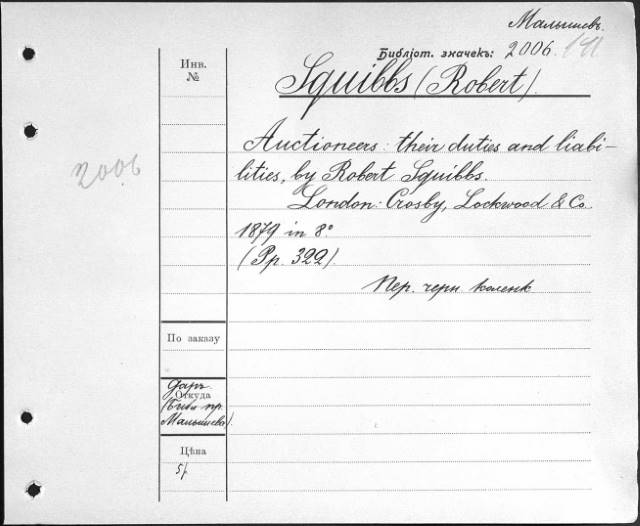 Малышевъ.
Библіот. значекъ: 2006.
Инв.
№
Squibbs (Robert).
2006
Auctioneers: their duties and liabi-
lities, by Robert Squibbs.
London: Crosby, Lockwood & Co.
1879 in 8°
(Pp. 322).
Пер. черн коленк
По заказу
Даръ
Откуда
(Библ пр.
Малышева).
Цѣна
5/